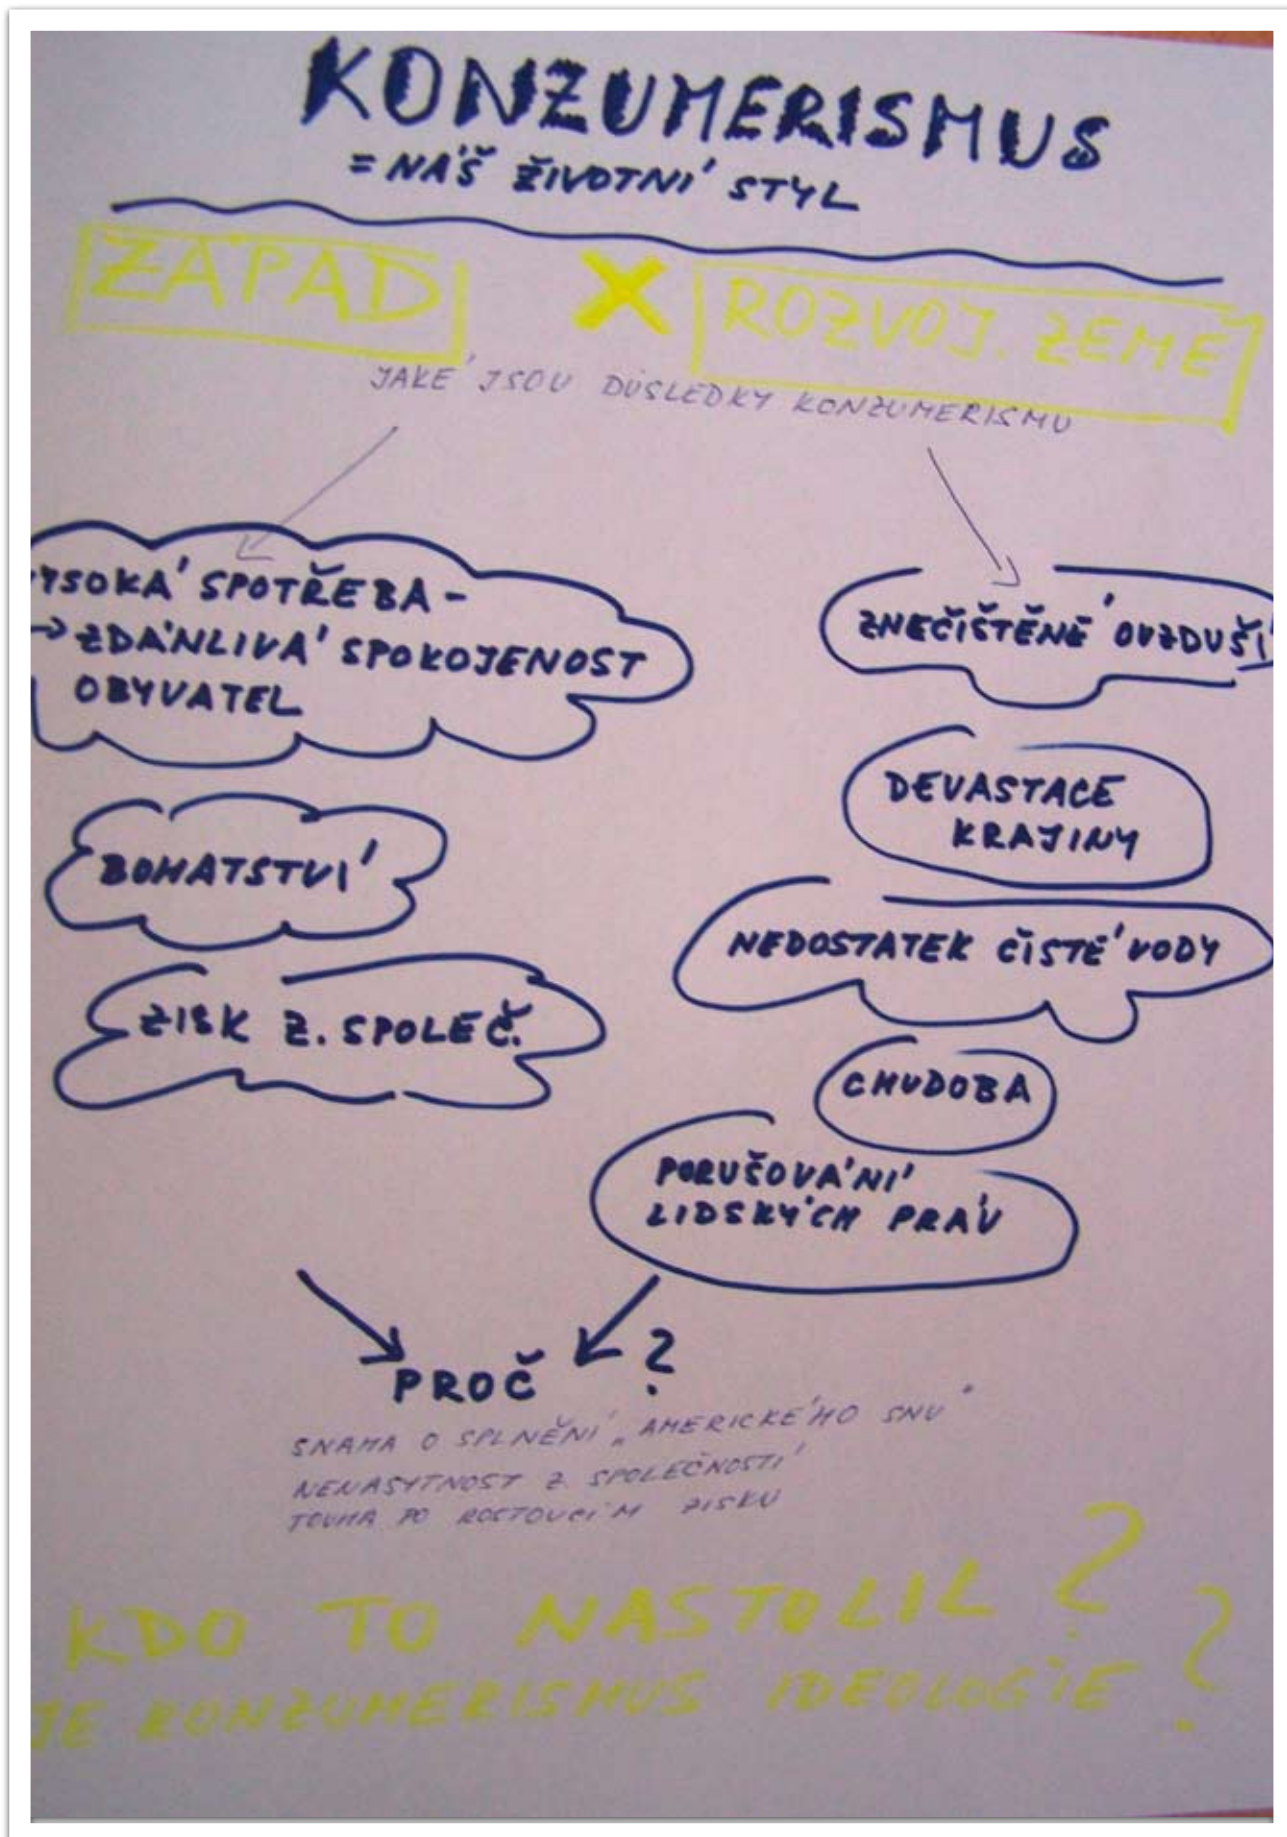 KONZUMERISMUS
= NÁŠ ŽIVOTNÍ STYL
ZÁPAD X ROZVOJ. ZEMĚ
JAKÉ JSOU DŮSLEDKY KONZUMERISMU
YSOKÁ SPOTŘEBA -
→ ZDÁNLIVÁ SPOKOJENOST
OBYVATEL
BOHATSTVÍ
ZISK Z. SPOLEČ.
ZNEČIŠTĚNÉ OVZDUŠÍ
DEVASTACE
KRAJINY
NEDOSTATEK ČISTÉ VODY
CHUDOBA
PORUŠOVÁNÍ
LIDSKÝCH PRÁV
PROČ ?
SNAHA O SPLNĚNÍ „AMERICKÉHO SNU"
NENASYTNOST Z. SPOLEČNOSTÍ
TOUHA PO ROSTOUCÍM ZISKU
KDO TO NASTOLIL ?
JE KONZUMERISMUS IDEOLOGIE ?